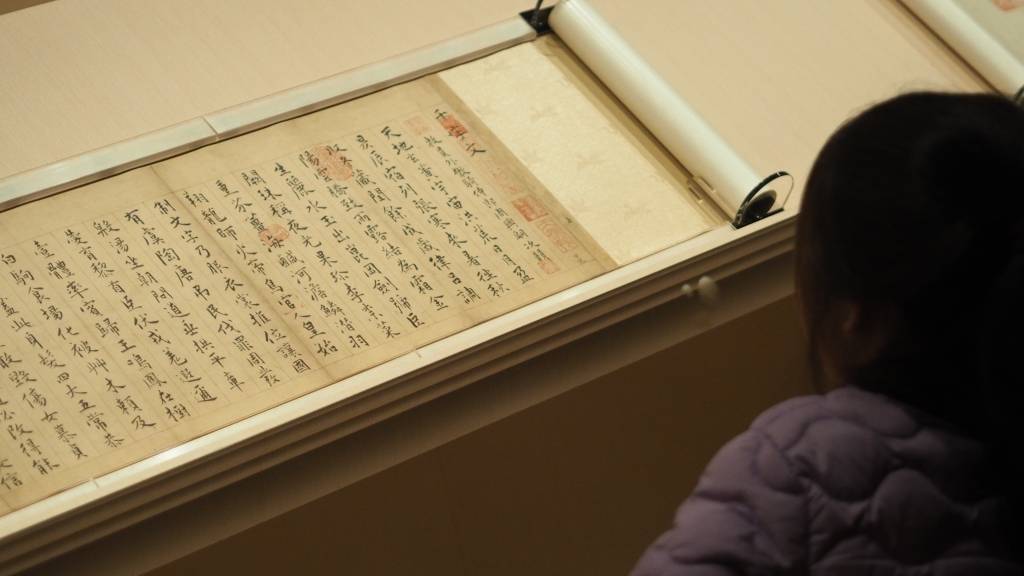 千字文
敕員外散騎侍郎周興嗣次韻
天地玄黃宇宙洪荒日月盈
昃辰宿列張寒來暑往秋
收冬藏閏餘成歲律呂調
陽雲騰致雨露結為霜金
生麗水玉出崑岡劍號巨
闕珠稱夜光果珍李柰菜
重芥薑海鹹河淡鱗潛羽
翔龍師火帝鳥官人皇始
制文字乃服衣裳推位讓國
有虞陶唐弔民伐罪周發
殷湯坐朝問道垂拱平章
愛育黎首臣伏戎羌遐邇
壹體率賓歸王鳴鳳在樹
白駒食場化被艸木賴及
蓋此身髮四大五常恭
敢毀傷女慕貞
必改得能